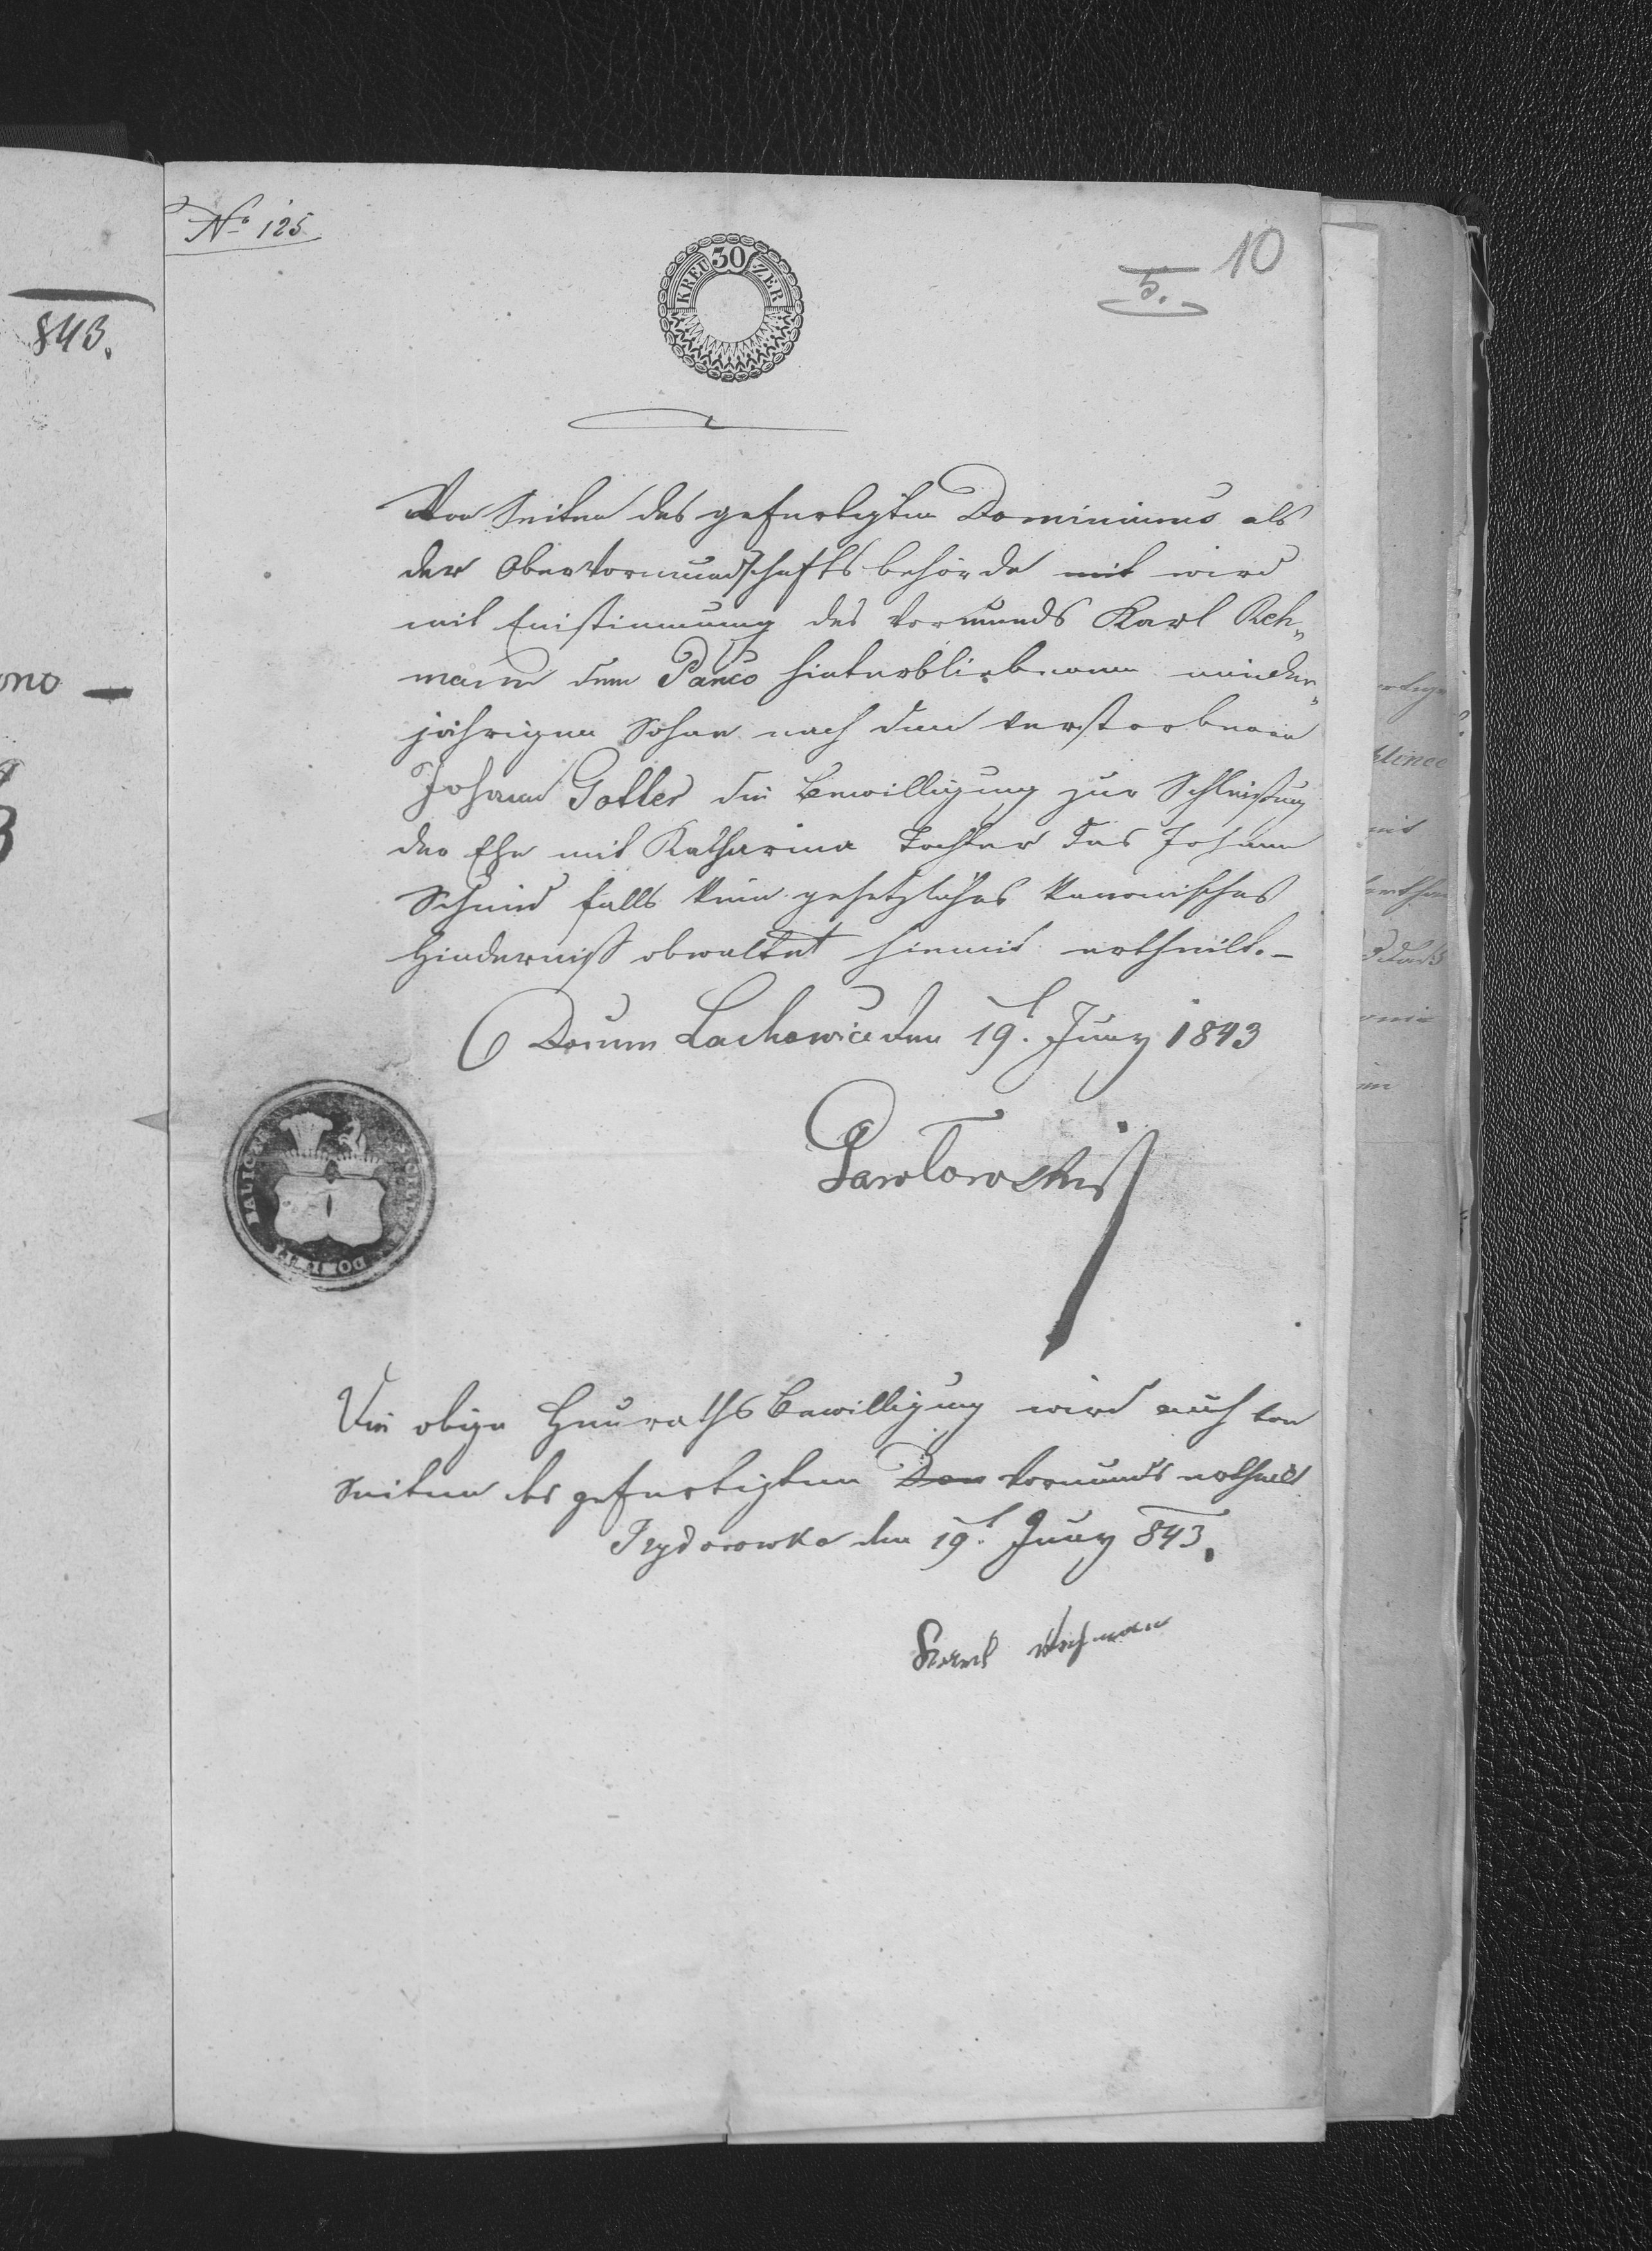 No 125
10
5.
30
KREUZER
843.
Von Seiten des gefertigten Dominiums als
der Obervormundschafts behörde mit wird
mit Einstimmung des Vormunds Karl Reh-
mann dem Panko hinterbliebenen minder-
jährigen Sohne nach dem verstorbenen
Johann Goller die Bewilligung zur Schleißung
der Ehe mit Katharina Tochter des Johann
Schmid falls kein gesetzliches kanonisches
Hinderniß obwaltet hiemit ertheilt. –
Domin Lachowice den 19t. Juny 1843
Pawłowski
Die obige Heuraths Bewilligung wird auch von
Seiten des gefertigten Dom Vormunds ertheilt
Izydorowka den 19t. Juny 843.
Karl Rehmann